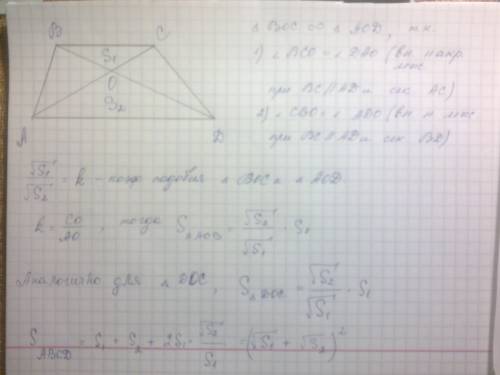 B C
S₁
O
S₂
A D
△ BOC ∞ △ AOD, т.к.
1) ∠ BCO = ∠ DAO (вн. накр. леж
при BC || AD и сек AC)
2) ∠ CBO = ∠ ADO (вн. н. леж
при BC || AD и сек BD)
√S₁ / √S₂ = k – коэф. подобия △ BOC и △ AOD.
k = CO / AO, тогда S△AOB = √S₂ / √S₁ · S₁
Аналогично для △ DOC, S△DOC = √S₂ / √S₁ · S₁
S ABCD = S₁ + S₂ + 2S₁ · √S₂ / S₁ = (√S₁ + √S₂)²